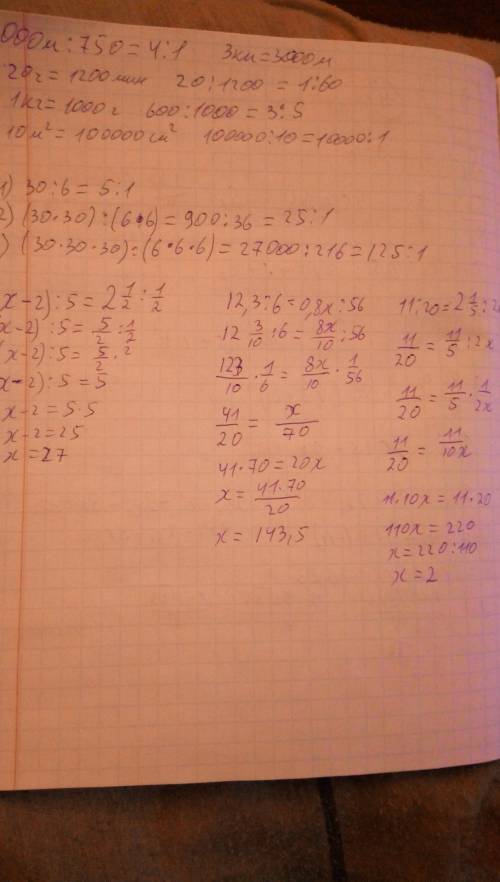 000м : 750 = 4 : 1   3км = 3000м
20г = 1200мин   20 : 1200 = 1 : 60
1кг = 1000г   600 : 1000 = 3 : 5
10м² = 100000см²   100000 : 10 = 10000 : 1
1) 30 : 6 = 5 : 1
2) (30·30) : (6·6) = 900 : 36 = 25 : 1
) (30·30·30) : (6·6·6) = 27000 : 216 = 125 : 1
x-2) : 5 = 2 1/2 : 1/2
x-2) : 5 = 5/2 : 1/2
(x-2) : 5 = 5/2 · 2
x-2) : 5 = 5
x-2 = 5·5
x-2 = 25
x = 27
12,3 : 6 = 0,8x : 56
12 3/10 : 6 = 8x/10 : 56
123/10 · 1/6 = 8x/10 · 1/56
41/20 = x/70
41·70 = 20x
x = 41·70/20
x = 143,5
11 : 20 = 2 1/5 : 2
11/20 = 11/5 : 2x
11/20 = 11/5 · 1/2x
11/20 = 11/10x
11·10x = 11·20
110x = 220
x = 220 : 110
x = 2